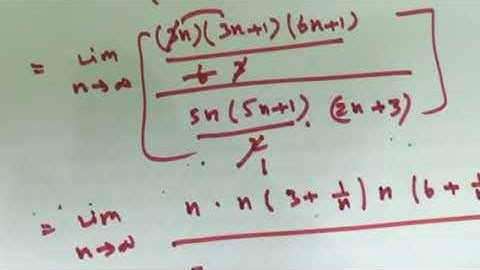 = lim n→∞ [ (3n)(3n+1)(6n+1) / 6 2
5n(5n+1) . (2n+3) / 2 1 ]
= lim n→∞ n · n (3 + 1/n) n (6 + 1/n